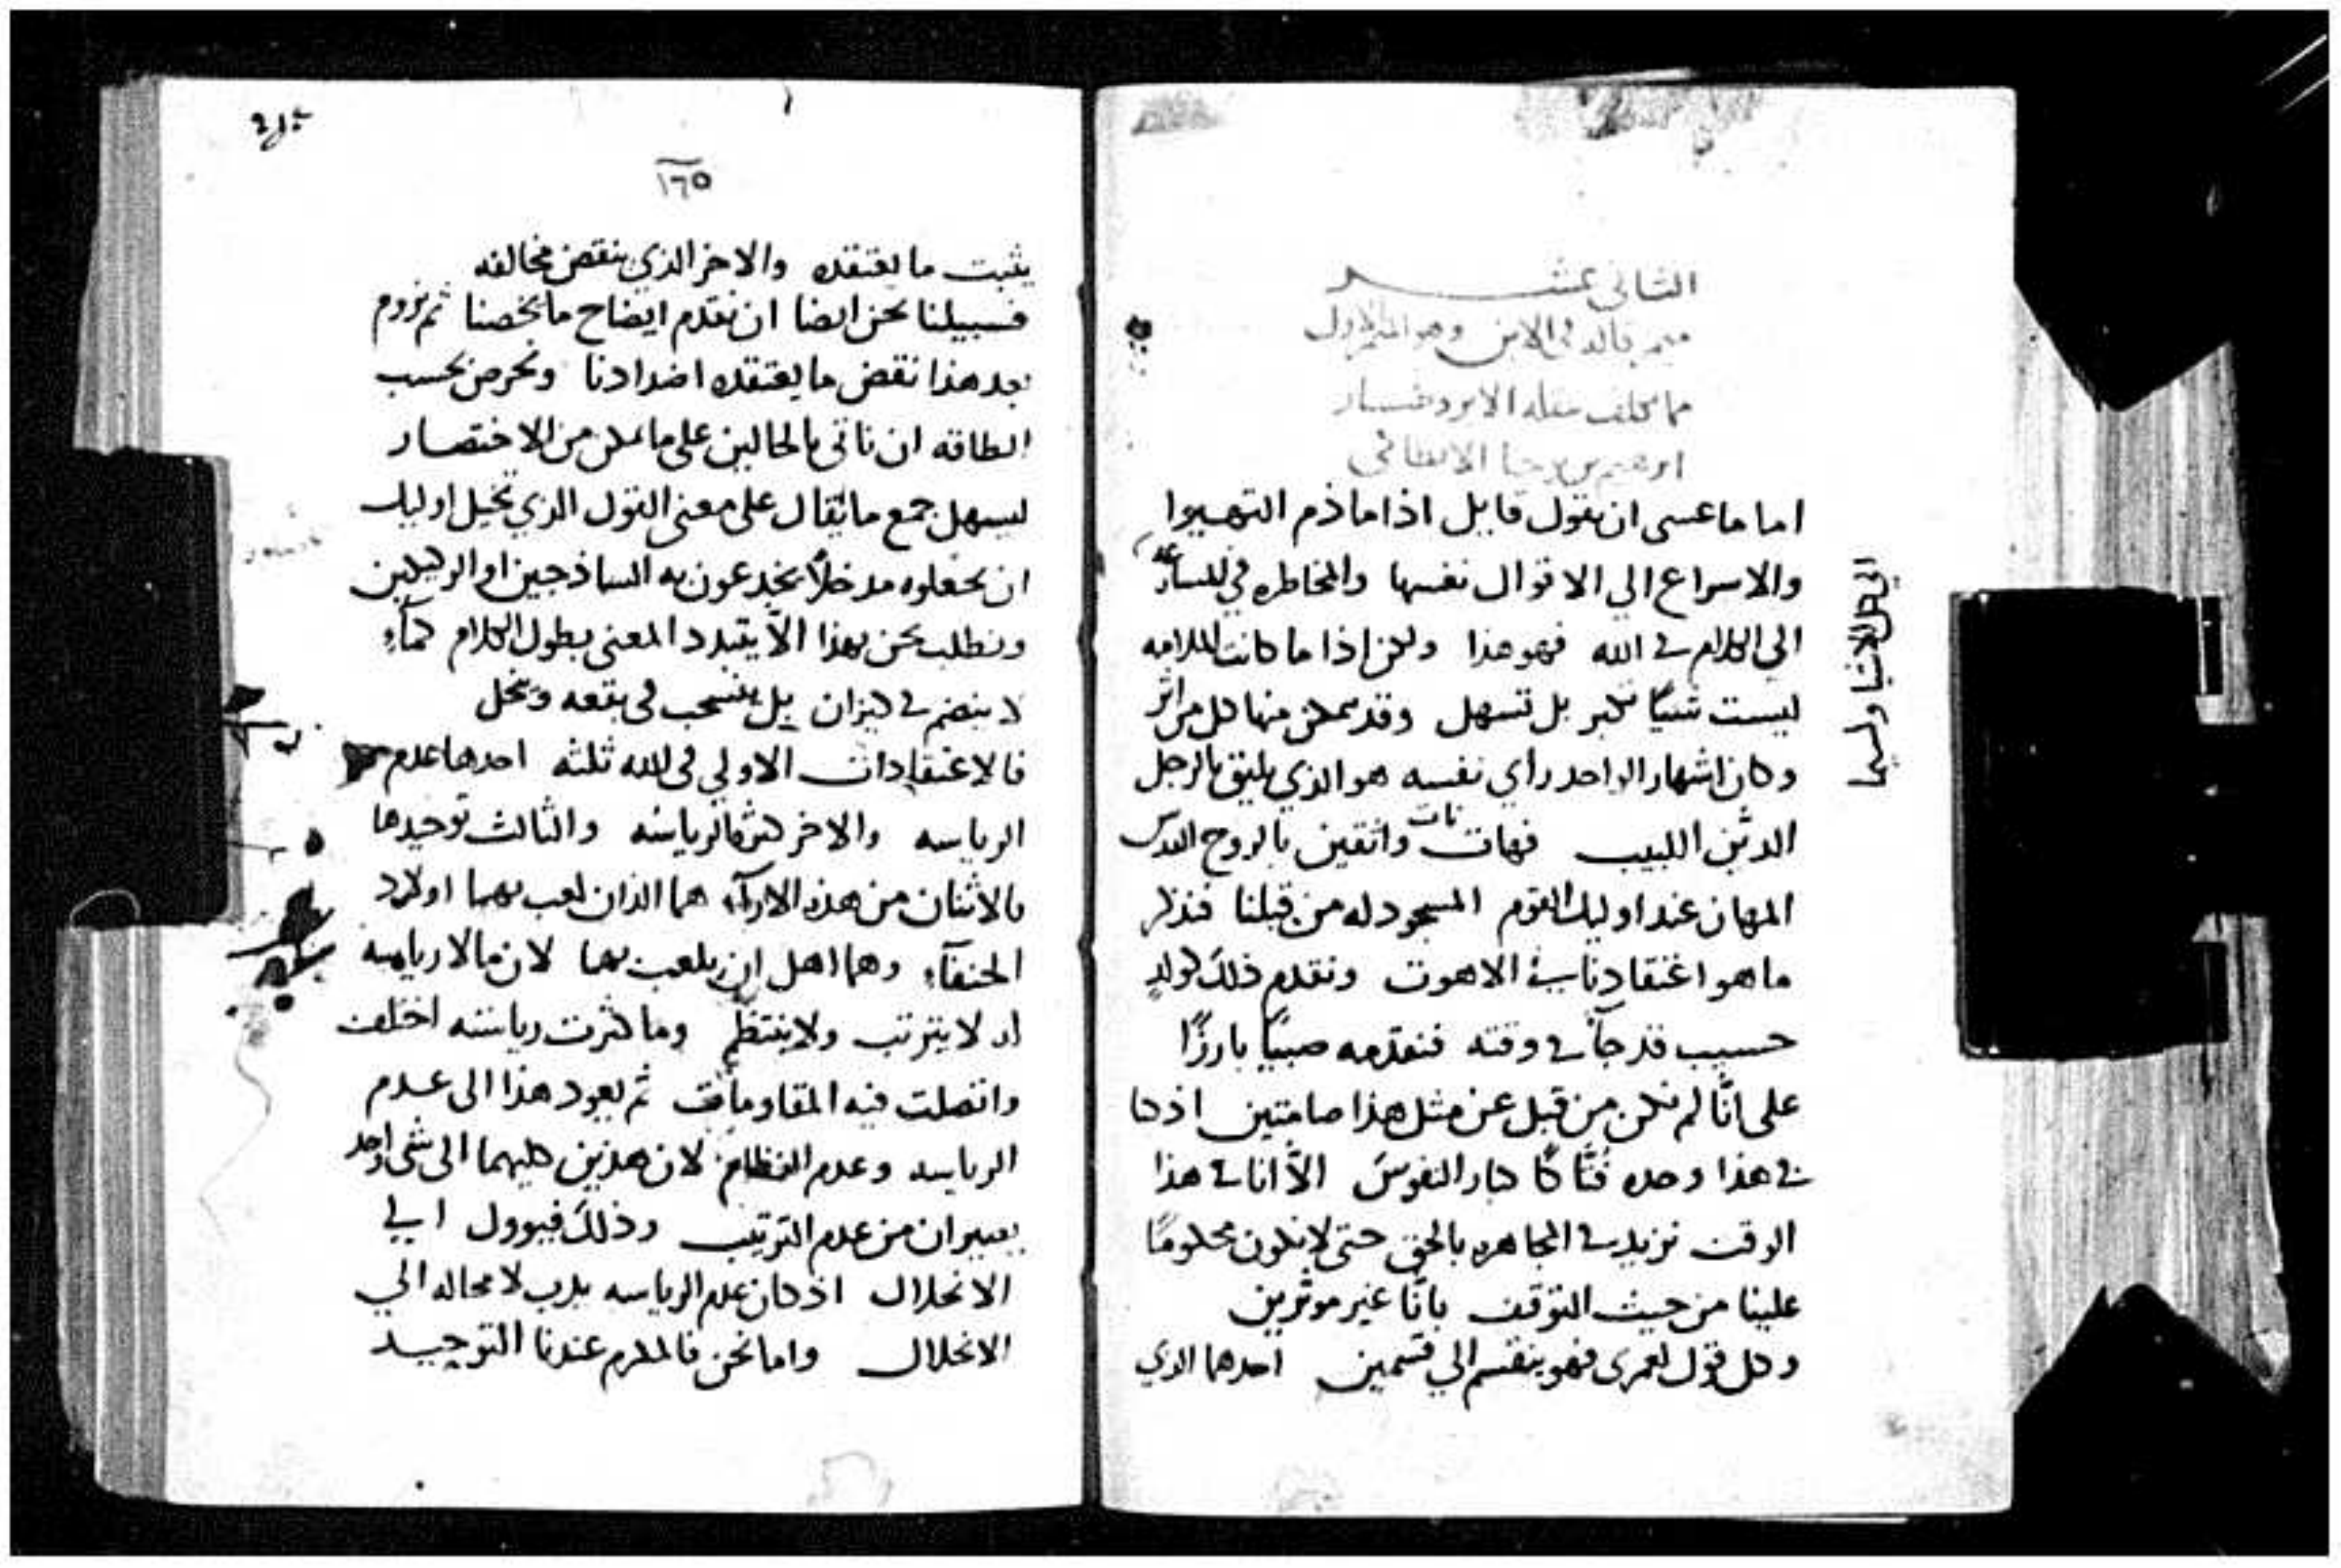 الثاني عشر
ميمر قاله في الابن وهو الميمر الاول
مما نقله الابرودخسيار
ابرهيم بن يوحنا الانطاكي
اما ما عسى ان يقول قايل اذا ما ذم التهيوا
والاسراع الي الاقوال نفسها والمخاطره في المسارعه
الى الكلام في الله فهو هذا ولكن اذا ما كانت الملامه
ليست شيئًا يكبر بل تسهل وقد يتمكن منها كل من اثر
وكان اشهار الواحد رأي نفسه هو الذي يليق بالرجل
الديّن اللبيب فهات واثقين بالروح القدس
المهان عند اوليك القوم المسجود له من قبلنا فنذكر
ما هو اعتقادنا في الاهوت ونقدم ذلك كولد
حسيب قد جآ في وقته فنقدمه صبيًا بارزًا
على انّا لم نكن من قبل عن مثل هذا صامتين اذ كنا
في هذا وحده فُتّاكًا كبار النفوس الاّ انا في هذا
الوقت نزيد في المجاهره بالحق حتى لا نكون محكومًا
علينا من حيث التوقف بانّا غير موثرين
وكل قول لعمرى فهو ينقسم الي قسمين احدهما الذي
الي حل الاشيا ولسيما
١٦٥
يثبت ما يعتقده والاخر الذي ينقض مخالفه
فسبيلنا نحن ايضا ان نقدم ايضاح ما يخصنا ثم نروم
بعد هذا نقض ما يعتقده اضدادنا ونحرص بحسب
الطاقه ان ناتي بالحالين على ما يمكن من الاختصار
ليسهل جمع ما يقال على معنى القول الذي تخيل اوليك
ان يجعلوه مدخلاً يخدعون به الساذجين او الركيكين
ونطلب نحن بهذا الاّ يتبدد المعنى بطول الكلام كمآء
لا ينضم في كيزان بل ينسحب في بقعه وينحل
فالاعتقادات الاولي في الله ثلثه احدها عدم
الرياسه والاخر كثرة الرياسه والثالث توحيدها
فالاثنان من هذه الارآء هما الذان لعب بهما اولاد
الحنفآء وهما اهل ان يلعب بهما لان ما لا رياسه
له لا يترتب ولا ينتظم وما كثرت رياسته اختلف
واتصلت فيه المقاومات ثم يعود هذا الى عدم
الرياسه وعدم النظام لان هذين كليهما الى شى واحد
يصيران من عدم الترتيب وذلك فيوول الي
الانحلال اذ كان عدم الرياسه يدرب لا محاله الي
الانحلال واما نحن فالمكرم عندنا التوحيد